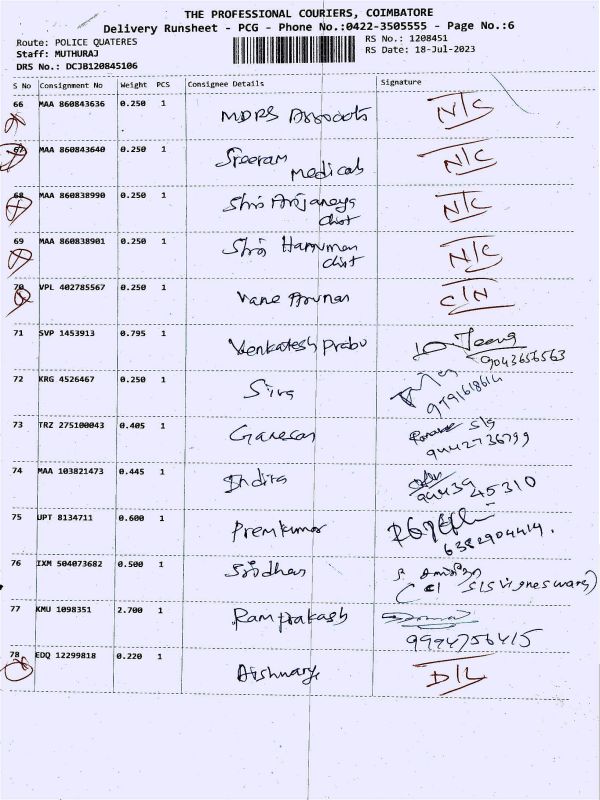 THE PROFESSIONAL COURIERS, COIMBATORE
Delivery Runsheet - PCG - Phone No.:0422-3505555 - Page No.:6
Route: POLICE QUATERES
RS No.: 1208451
Staff: MUTHURAJ
RS Date: 18-Jul-2023
DRS No.: DCJB120845106
S No Consignment No Weight PCS Consignee Details Signature
66 MAA 860843636 0.250 1 MDRS Associats N/C
67 MAA 860843640 0.250 1 Sreeram N/C
Medicals
68 MAA 860838990 0.250 1 Shri Anjaneya N/C
dist
69 MAA 860838901 0.250 1 Shri Hanuman N/C
dist
70 VPL 402785567 0.250 1 C/N
71 SVP 1453913 0.795 1 Venkatesh Prabu
9043656563
72 KRG 4526467 0.250 1 Siva
9791618614
73 TRZ 275100043 0.405 1 Ganesan S/g
9442736799
74 MAA 103821473 0.445 1 Indira
94439 45310
75 UPT 8134711 0.600 1 Premkumar
6382904414.
76 IXM 504073682 0.500 1 Sridhar
77 KMU 1098351 2.700 1 Ramprakash
9994756415
78 EDQ 12299818 0.220 1 Aishwarya D/L